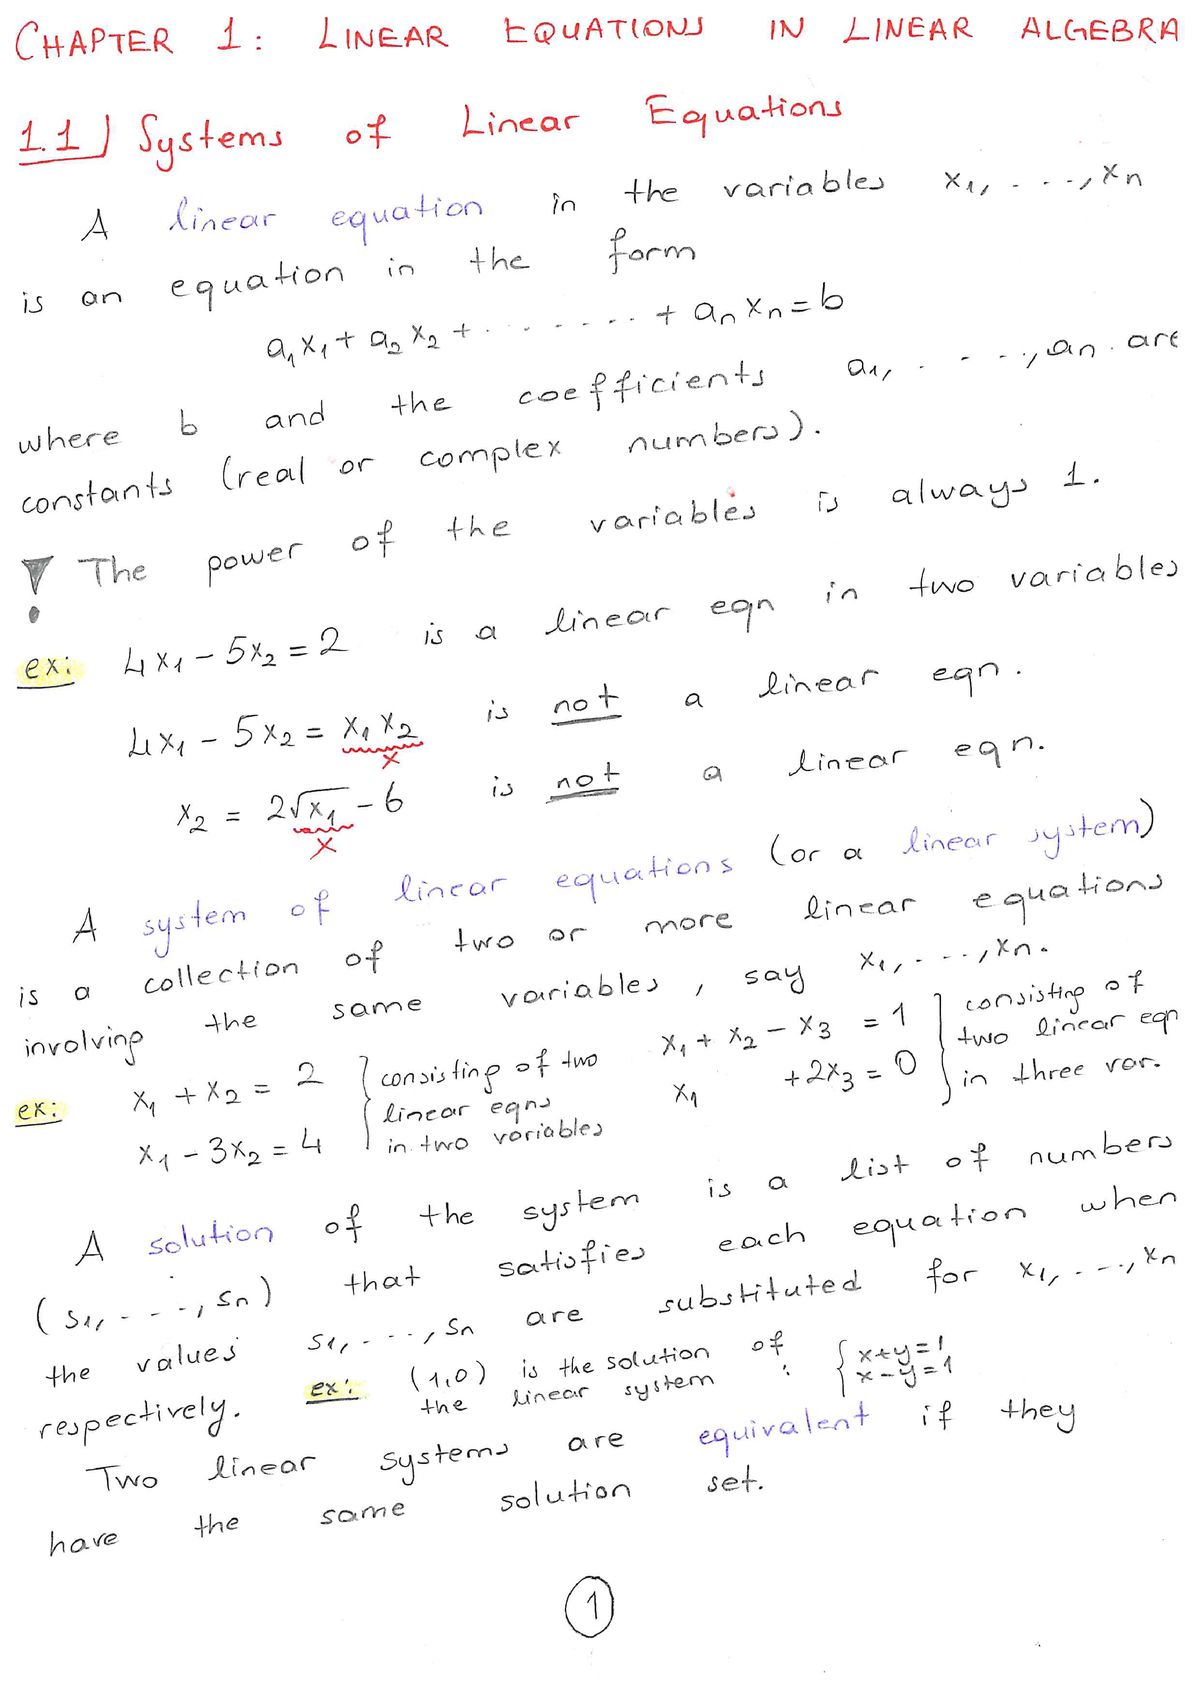 CHAPTER 1: LINEAR EQUATIONS IN LINEAR ALGEBRA
1.1) Systems of Linear Equations
A linear equation in the variables x₁, ..., xn
is an equation in the form
a₁x₁ + a₂x₂ + ....... + anxn = b
where b and the coefficients a₁, ...., an are
constants (real or complex numbers).
! The power of the variables is always 1.
ex: 4x₁ - 5x₂ = 2 is a linear eqn in two variables
4x₁ - 5x₂ = x₁x₂ is not a linear eqn.
x
x₂ = 2√x₁ - 6 is not a linear eqn.
x
A system of linear equations (or a linear system)
is a collection of two or more linear equations
involving the same variables, say x₁, ..., xn.
ex: x₁ + x₂ = 2 } consisting of two x₁ + x₂ - x₃ = 1 } consisting of
linear eqns two linear eqn
x₁ - 3x₂ = 4 in two variables x₁ + 2x₃ = 0 in three var.
A solution of the system is a list of numbers
(s₁, ..., sn) that satisfies each equation when
the values s₁, ..., sn are substituted for x₁, ..., xn
respectively. ex: (1,0) is the solution of { x+y=1
the linear system : x-y=1
Two linear systems are equivalent if they
have the same solution set.
1